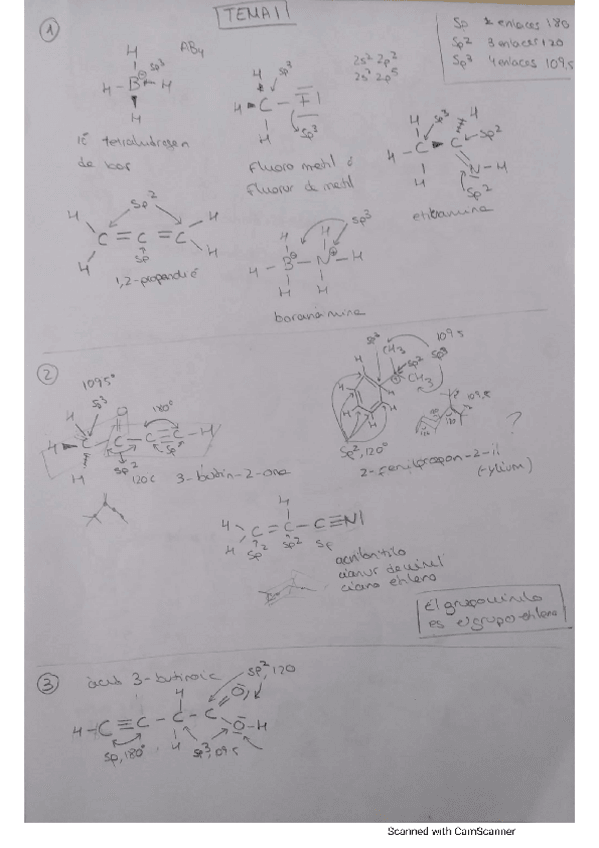 TEMA 1
Sp 2 enlaces 180
Sp2 3 enlaces 120
Sp3 4 enlaces 109,5
1
AB4
H
Sp3
H-B-H
⊕
H
tetrahidrogen
de bor
2s2 2p2
2s2 2p5
H
Sp3
C - F
H
Sp3
Fluoro metil ó
Fluorur de metil
H
H
Sp3
Sp2
H-C C
H
N-H
Sp2
Sp2
H
H
C=C=C
H
H
Sp
1,2-propandié
Sp3
H H
H-B-N-H
⊕
H H
2
109,5°
Sp3
H
O
180°
C-C-C≡C-H
H
Sp2
Sp
120
3-butin-2-ona
Sp3
CH3
Sp2
Sp3
109,5
CH3
H
Sp2, 120°
109,5
120
?
2-fenilpropan-2-il
(-ylium)
H
H
C=C-C≡N
H
Sp2 Sp2 Sp
acrilonitrilo
El grupo vinilo
es el grupo etileno
3
àcid 3-butinoic
Sp2, 120
H
O
H-C≡C-C-C
O-H
H
Sp, 180°
Sp3, 109,5
Scanned with CamScanner